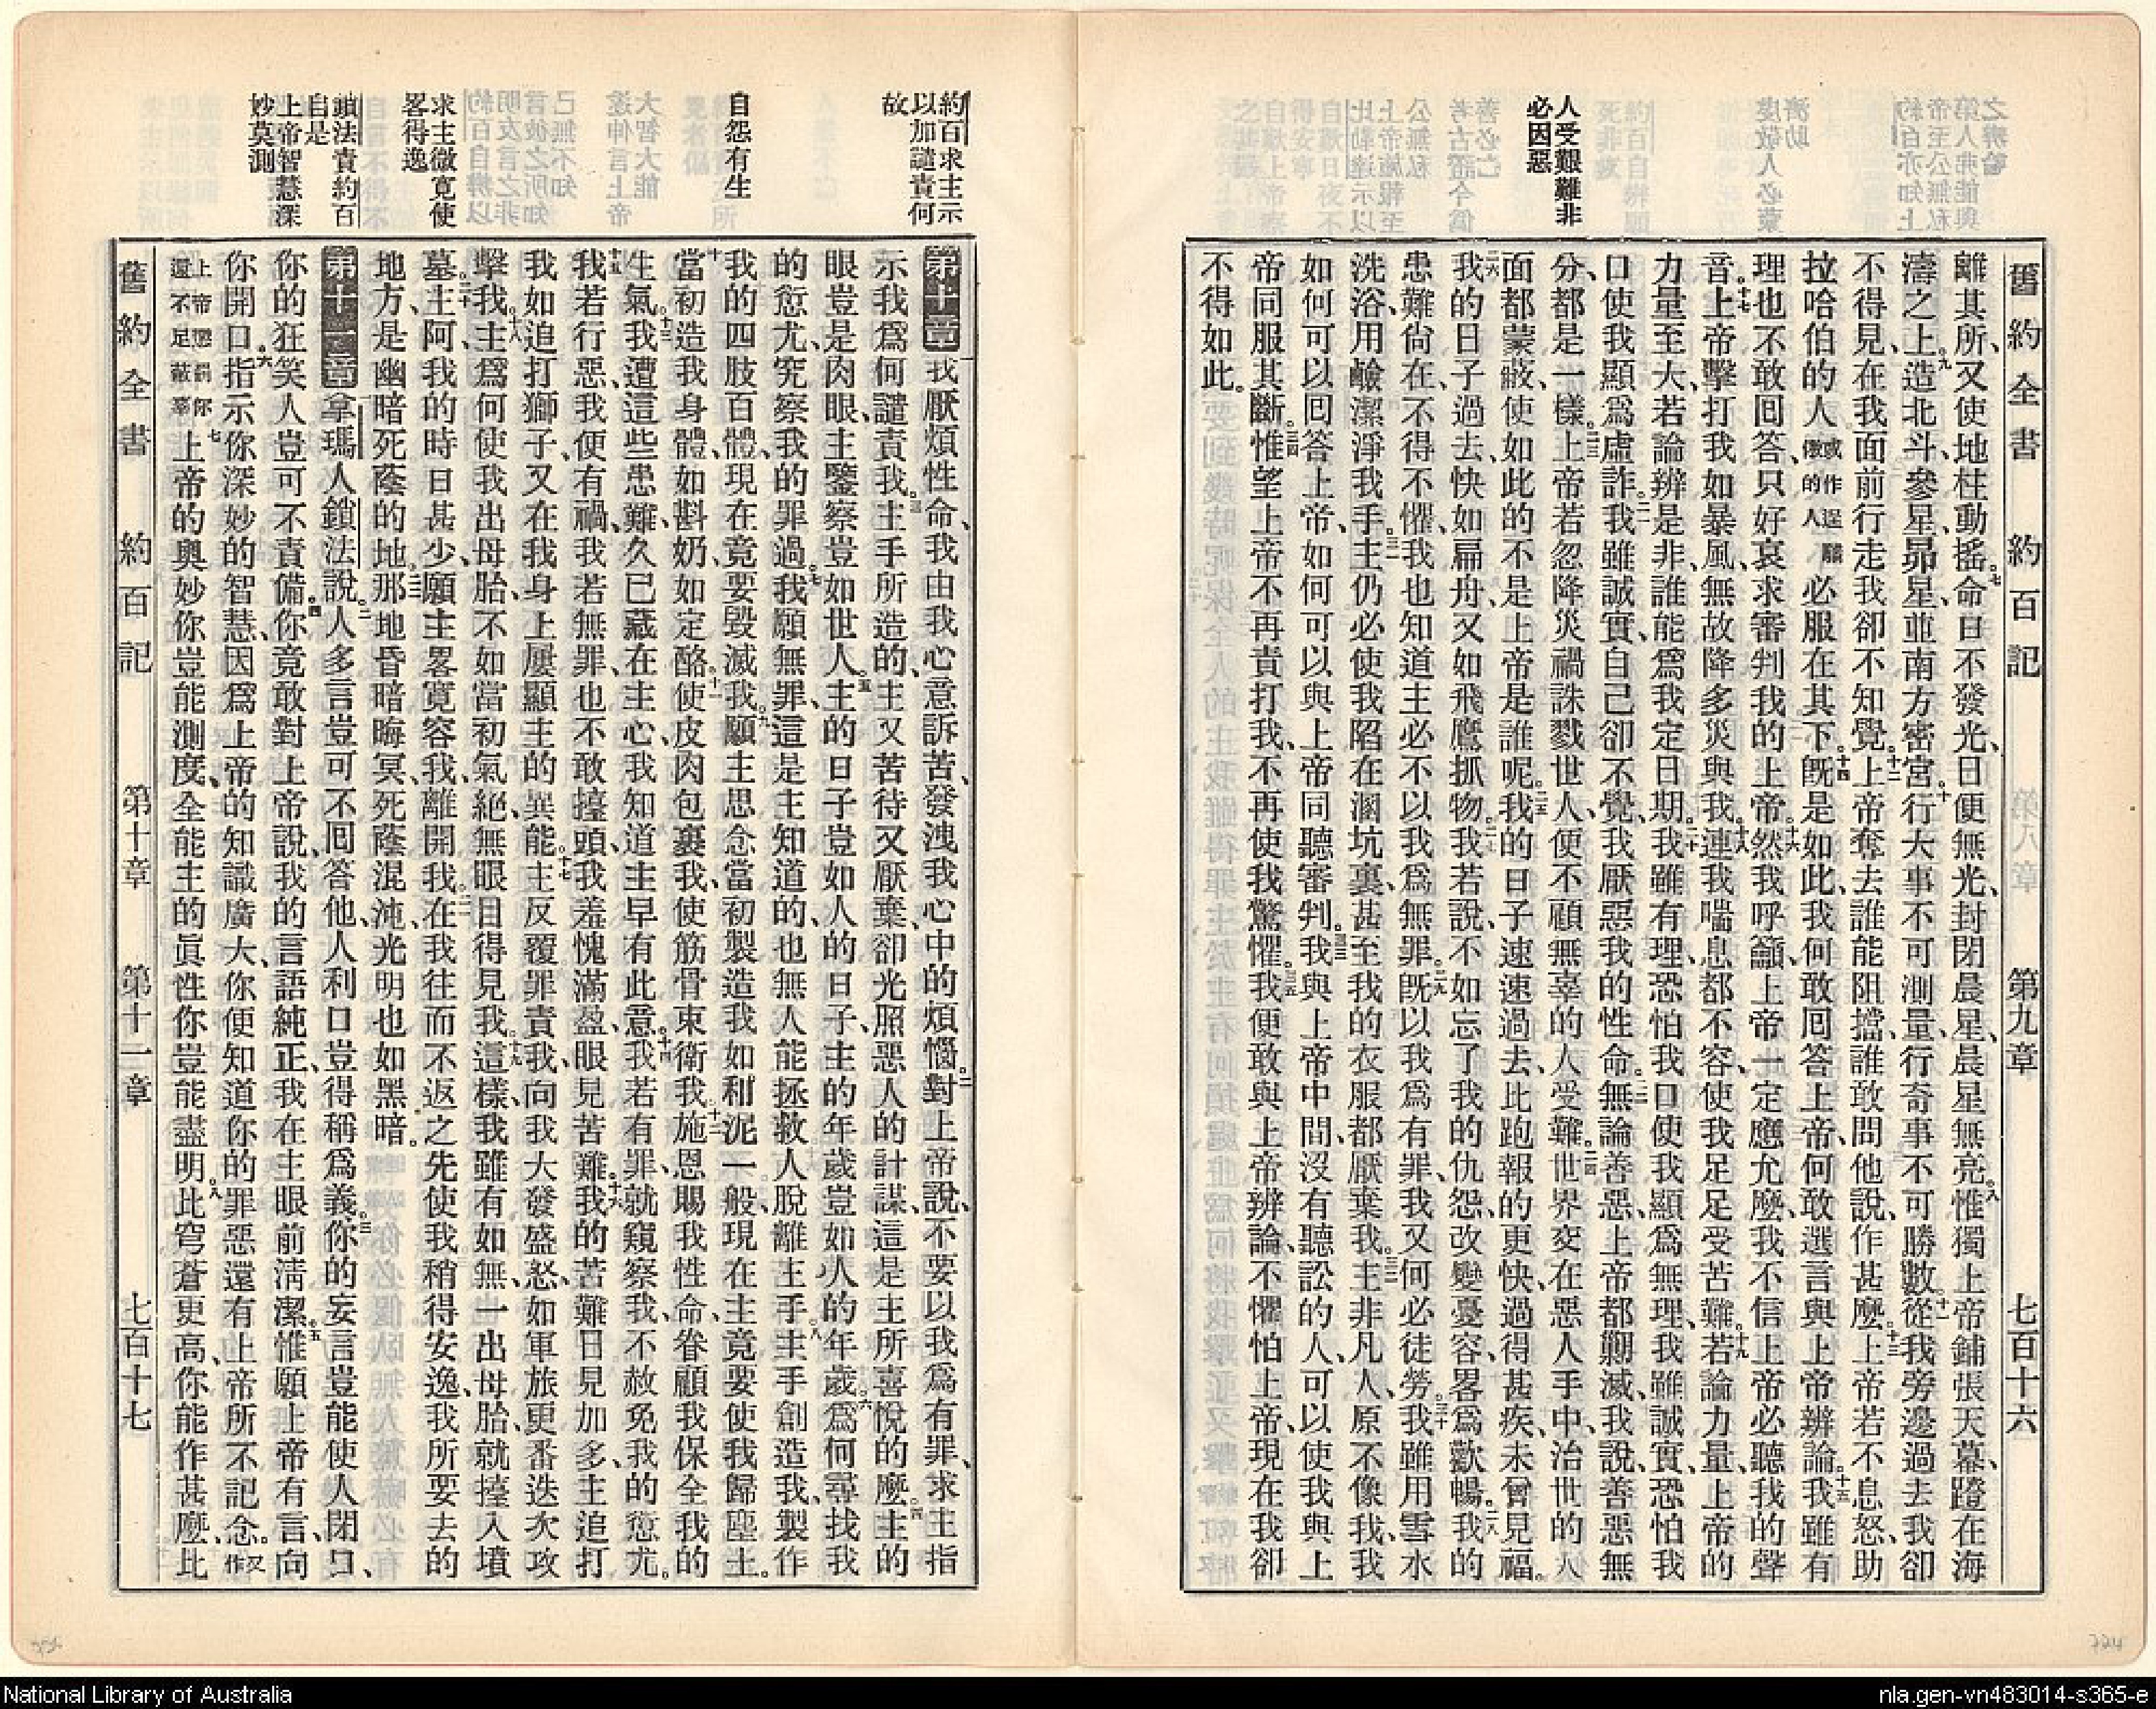 舊約全書 約百記 第九章 七百十六
離其所、又使地柱動搖。七命日不發光、日便無光、封閉晨星、晨星無亮。八惟獨上帝鋪張天幕、蹬在海
濤之上。九造北斗、參星、昴星、並南方密宮。十行大事不可測量、行奇事不可勝數。十一從我旁邊過去我卻
不得見、在我面前行走我卻不知覺。十二上帝奪去誰能阻擋、誰敢問他說、作甚麼。十三上帝若不息怒、助
拉哈伯的人或作逞驕傲的人必服在其下。十四既是如此、我何敢回答上帝、何敢選言與上帝辨論。十五我雖有
理也不敢回答、只好哀求審判我的上帝。十六然我呼籲上帝一定應允麼、我不信上帝必聽我的聲
音。十七上帝擊打我如暴風、無故降多災與我。十八連我喘息都不容、使我足足受苦難。十九若論力量、上帝的
力量至大、若論辨是非、誰能爲我定日期。二十我雖有理、恐怕我口使我顯爲無理、我雖誠實、恐怕我
口使我顯爲虛詐。二一我雖誠實、自己卻不覺、我厭惡我的性命。二二無論善惡、上帝都勦滅、我說善惡無
分、都是一樣。二三上帝若忽降災禍誅戮世人、便不顧無辜的人受難。二四世界交在惡人手中、治世的人
面都蒙蔽、使如此的不是上帝是誰呢。二五我的日子速速過去、比跑報的更快、過得甚疾、未曾見福。
二六我的日子過去、快如扁舟、又如飛鷹抓物。二七我若說、不如忘了我的仇怨、改變憂容、畧爲歡暢。二八我的
患難尚在、不得不懼、我也知道主必不以我爲無罪。二九既以我爲有罪、我又何必徒勞。三十我雖用雪水
洗浴、用鹼潔淨我手、三一主仍必使我陷在溷坑裏、甚至我的衣服都厭棄我。三二主非凡人、原不像我、我
如何可以回答上帝、如何可以與上帝同聽審判。三三我與上帝中間、沒有聽訟的人、可以使我與上
帝同服其斷。三四惟望上帝不再責打我、不再使我驚懼。三五我便敢與上帝辨論、不懼怕上帝、現在我卻
不得如此。
人受艱難非
必因惡
約百求主示
以加譴責何
故
自怨有生
求主微寬使
畧得逸
鎖法責約百
自是
上帝智慧深
妙莫測
第十章 一我厭煩性命、我由我心意訴苦、發洩我心中的煩惱。二對上帝說、不要以我爲有罪、求主指
示我爲何譴責我。三主手所造的、主又苦待又厭棄、卻光照惡人的計謀、這是主所喜悅的麼。四主的
眼豈是肉眼、主鑒察豈如世人。五主的日子豈如人的日子、主的年歲豈如人的年歲。六爲何尋找我
的愆尤、究察我的罪過。七我願無罪、這是主知道的、也無人能拯救人脫離主手。八主手創造我、製作
我的四肢百體、現在竟要毀滅我。九願主思念當初製造我如和泥一般、現在主竟要使我歸塵土。
十當初造我身體、如斟奶、如定酪。十一使皮肉包裹我、使筋骨束衛我。十二施恩賜我性命、眷顧我保全我的
生氣。十三我遭這些患難、久已藏在主心、我知道主早有此意。十四我若有罪、就窺察我、不赦免我的愆尤。
十五我若行惡、我便有禍、我若無罪、也不敢擡頭、我羞愧滿盈、眼見苦難。十六我的苦難日見加多、主追打
我如追打獅子、又在我身上屢顯主的異能。十七主反覆罪責我、向我大發盛怒、如軍旅更番迭次攻
擊我。十八主爲何使我出母胎、不如當初氣絕、無眼目得見我。十九這樣我雖有如無、一出母胎、就擡入墳
墓。二十主阿、我的時日甚少、願主畧寬容我、離開我。二一在我往而不返之先、使我稍得安逸、我所要去的
地方、是幽暗死蔭的地。二二那地昏暗晦冥、死蔭混沌、光明也如黑暗。
第十一章 一拿瑪人鎖法說、二人多言豈可不回答他、人利口豈得稱爲義。三你的妄言豈能使人閉口、
你的狂笑人豈可不責備。四你竟敢對上帝說、我的言語純正、我在主眼前淸潔。五惟願上帝有言、向
你開口、六指示你深妙的智慧、因爲上帝的知識廣大、你便知道你的罪惡還有上帝所不記念。又作
上帝懲罰你還不足蔽辜七上帝的奧妙你豈能測度、全能主的眞性你豈能盡明。八此穹蒼更高、你能作甚麼、比
舊約全書 約百記 第十章 第十一章 七百十七
National Library of Australia
nla.gen-vn483014-s365-e